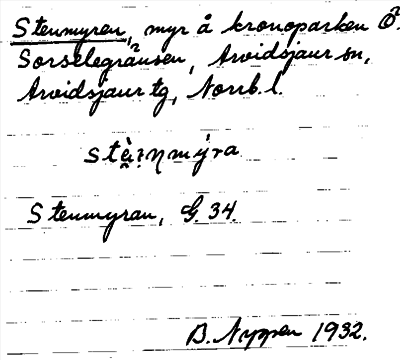 Stenmyren, myr å kronoparken Ö.
Sorselegränsen, Arvidsjaur sn,
Arvidsjaur tg, Norrb. l.
Stenmyran, G. 34.
B. Nyman 1932.